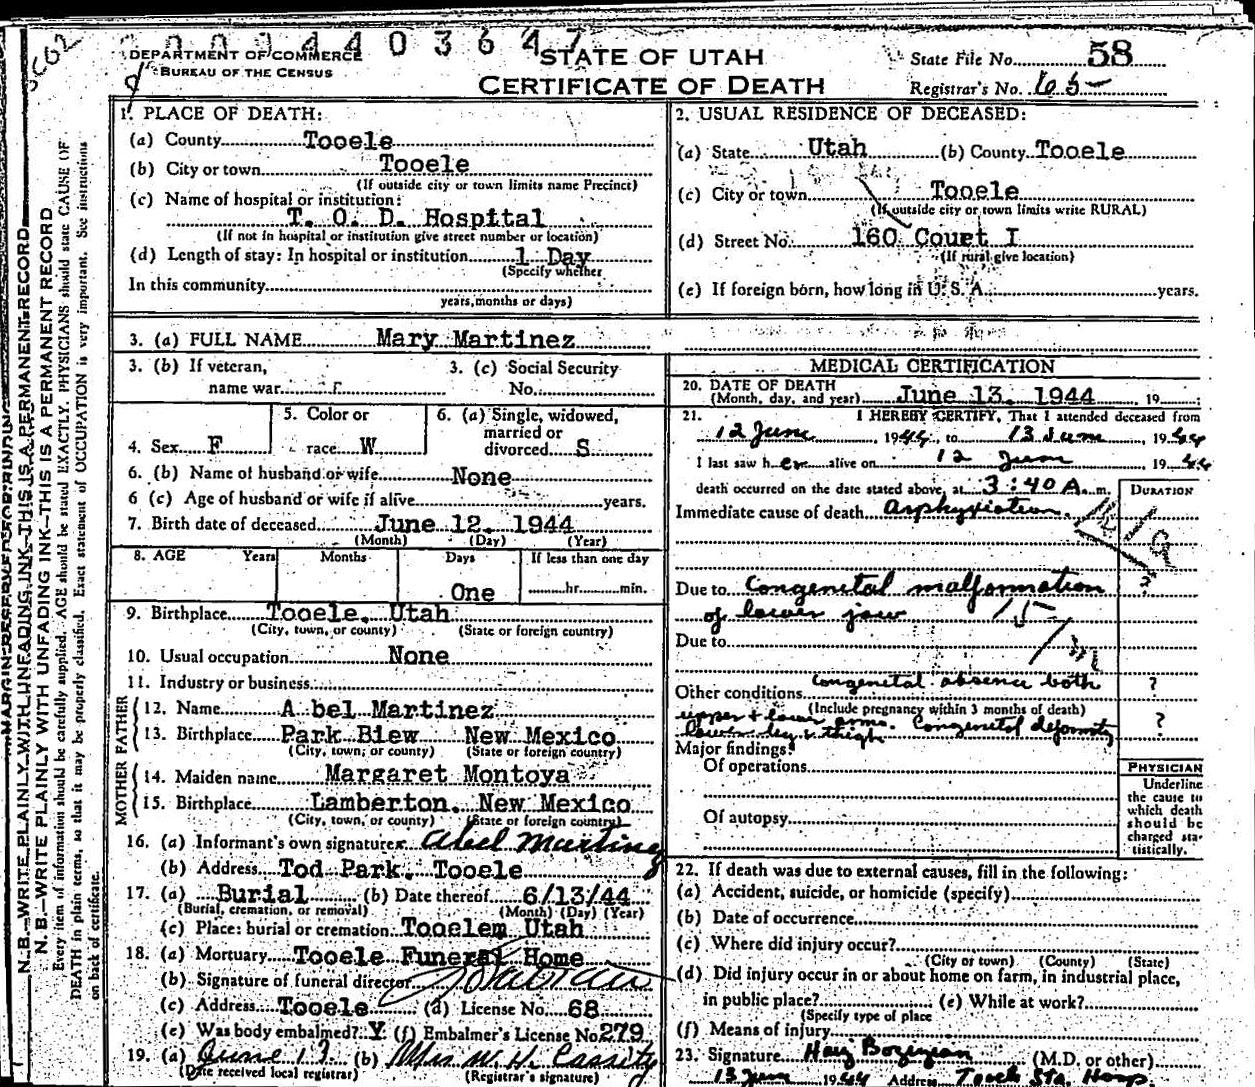 0 0 0 4 4 0 3 6 4 7
DEPARTMENT OF COMMERCE
BUREAU OF THE CENSUS
STATE OF UTAH
CERTIFICATE OF DEATH
State File No. 58
Registrar's No. 65
1. PLACE OF DEATH:
(a) County Tooele
(b) City or town Tooele
(If outside city or town limits name Precinct)
(c) Name of hospital or institution:
T. O. D. Hospital
(If not in hospital or institution give street number or location)
(d) Length of stay: In hospital or institution 1 Day
(Specify whether
In this community
years, months or days)
2. USUAL RESIDENCE OF DECEASED:
(a) State Utah (b) County Tooele
(c) City or town Tooele
(If outside city or town limits write RURAL)
(d) Street No. 160 Court I
(If rural give location)
(e) If foreign born, how long in U. S. A. years.
3. (a) FULL NAME Mary Martinez
3. (b) If veteran, 3. (c) Social Security
name war No.
4. Sex F 5. Color or race W 6. (a) Single, widowed, married or divorced S
6. (b) Name of husband or wife None
6 (c) Age of husband or wife if alive years.
7. Birth date of deceased June 12, 1944
(Month) (Day) (Year)
8. AGE Years Months Days If less than one day
One hr. min.
9. Birthplace Tooele, Utah
(City, town, or county) (State or foreign country)
10. Usual occupation None
11. Industry or business
FATHER
12. Name A bel Martinez
13. Birthplace Park Biew New Mexico
(City, town, or county) (State or foreign country)
MOTHER
14. Maiden name Margaret Montoya
15. Birthplace Lamberton, New Mexico
(City, town, or county) (State or foreign country)
16. (a) Informant's own signature Abel Martinez
(b) Address Tod Park, Tooele
17. (a) Burial (b) Date thereof 6/13/44
(Burial, cremation, or removal) (Month) (Day) (Year)
(c) Place: burial or cremation Tooelem Utah
18. (a) Mortuary Tooele Funeral Home
(b) Signature of funeral director
(c) Address Tooele (d) License No. 68
(e) Was body embalmed? Y (f) Embalmer's License No. 279
19. (a) June 17 (b) Mrs W. H. Cassity
(Date received local registrar) (Registrar's signature)
MEDICAL CERTIFICATION
20. DATE OF DEATH
(Month, day, and year) June 13, 1944, 19
21. I HEREBY CERTIFY, That I attended deceased from
12 June, 1944, to 13 June, 1944
I last saw her alive on 12 June 1944
death occurred on the date stated above, at 3:40 A. m.
DURATION
Immediate cause of death Asphyxiation.
Due to Congenetal malformation ?
of lower jaw
Due to
Other conditions Congenetal absence both ?
(Include pregnancy within 3 months of death)
upper & lower arms. Congenetal deformity ?
lower leg & thigh
Major findings:
Of operations
Of autopsy
PHYSICIAN
Underline
the cause to
which death
should be
charged sta-
tistically.
22. If death was due to external causes, fill in the following:
(a) Accident, suicide, or homicide (specify)
(b) Date of occurrence
(c) Where did injury occur?
(City or town) (County) (State)
(d) Did injury occur in or about home on farm, in industrial place,
in public place? (e) While at work?
(Specify type of place
(f) Means of injury
23. Signature (M.D. or other)
13 June 1944 Address Tooele Sta. Hosp.
MARGIN RESERVED FOR BINDING
N. B.—WRITE PLAINLY WITH UNFADING INK—THIS IS A PERMANENT RECORD
N. B.—WRITE PLAINLY WITH UNFADING INK—THIS IS A PERMANENT RECORD
Every item of information should be carefully supplied. AGE should be stated EXACTLY. PHYSICIANS should state CAUSE OF
DEATH in plain terms, so that it may be properly classified. Exact statement of OCCUPATION is very important. See instructions
on back of certificate.